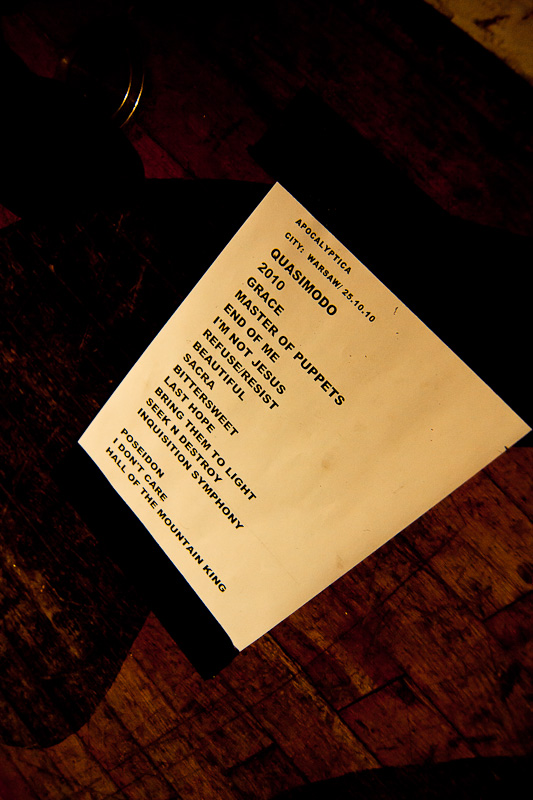 APOCALYPTICA
CITY: WARSAW/ 25.10.10
QUASIMODO
2010
GRACE
MASTER OF PUPPETS
END OF ME
I'M NOT JESUS
REFUSE/RESIST
BEAUTIFUL
SACRA
BITTERSWEET
LAST HOPE
BRING THEM TO LIGHT
SEEK N DESTROY
INQUISITION SYMPHONY
POSEIDON
I DON'T CARE
HALL OF THE MOUNTAIN KING